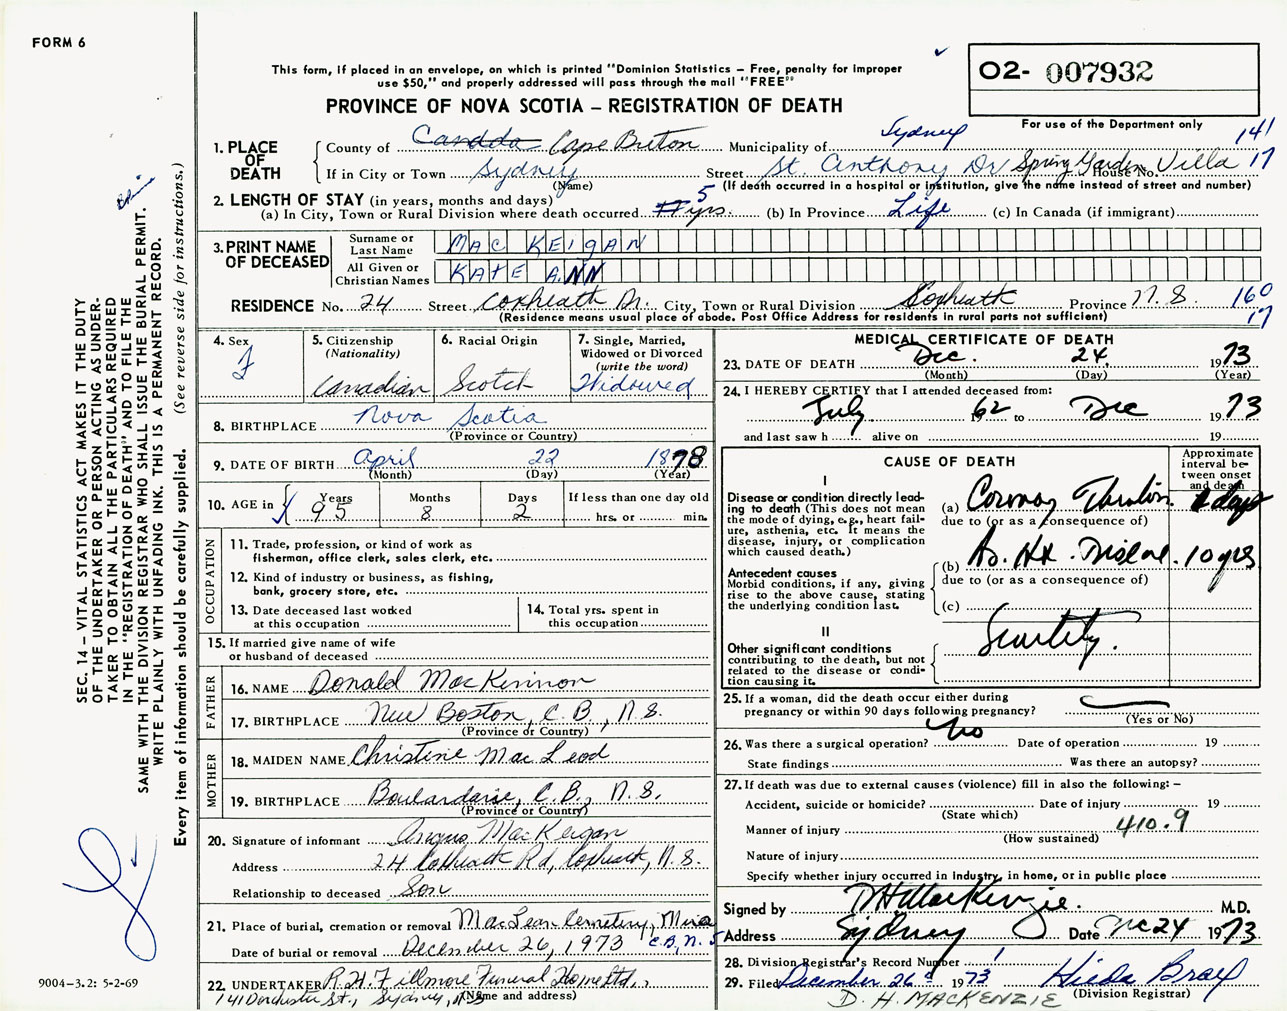 FORM 6
This form, if placed in an envelope, on which is printed "Dominion Statistics – Free, penalty for improper
use $50," and properly addressed will pass through the mail "FREE"
O2- 007932
PROVINCE OF NOVA SCOTIA – REGISTRATION OF DEATH
For use of the Department only
1. PLACE OF DEATH
County of Cape Breton Municipality of Sydney 141
If in City or Town Sydney Street St. Anthony Dr Spring Garden Villa House No. 17
(Name) (If death occurred in a hospital or institution, give the name instead of street and number)
2. LENGTH OF STAY (in years, months and days)
(a) In City, Town or Rural Division where death occurred 5 yrs. (b) In Province Life (c) In Canada (if immigrant)
3. PRINT NAME OF DECEASED
Surname or Last Name MAC KEIGAN
All Given or Christian Names KATE ANN
RESIDENCE No. 24 Street Coxheath Dr. City, Town or Rural Division Coxheath Province N.S. 160
(Residence means usual place of abode. Post Office Address for residents in rural parts not sufficient) 17
4. Sex F
5. Citizenship (Nationality) Canadian
6. Racial Origin Scotch
7. Single, Married, Widowed or Divorced (write the word) Widowed
8. BIRTHPLACE Nova Scotia
(Province or Country)
9. DATE OF BIRTH April 22 1878
(Month) (Day) (Year)
10. AGE in Years 95 Months 8 Days 2 If less than one day old hrs. or min.
OCCUPATION
11. Trade, profession, or kind of work as
fisherman, office clerk, sales clerk, etc.
12. Kind of industry or business, as fishing,
bank, grocery store, etc.
13. Date deceased last worked
at this occupation
14. Total yrs. spent in
this occupation
15. If married give name of wife
or husband of deceased
FATHER
16. NAME Donald MacKinnon
17. BIRTHPLACE New Boston, C.B., N.S.
(Province or Country)
MOTHER
18. MAIDEN NAME Christine MacLeod
19. BIRTHPLACE Boulardarie, C.B., N.S.
(Province or Country)
20. Signature of informant Angus MacKeigan
Address 24 Coxheath Rd, Coxheath, N.S.
Relationship to deceased Son
21. Place of burial, cremation or removal MacLean Cemetery, Mira
Date of burial or removal December 26, 1973 C.B., N.S
22. UNDERTAKER R.H. Fillmore Funeral Home Ltd.,
141 Dorchester St., Sydney, N.S. (Name and address)
MEDICAL CERTIFICATE OF DEATH
23. DATE OF DEATH Dec. 24 1973
(Month) (Day) (Year)
24. I HEREBY CERTIFY that I attended deceased from:
July 62 to Dec 1973
and last saw h alive on 19
CAUSE OF DEATH
Approximate interval between onset and death
I
Disease or condition directly leading to death (This does not
mean the mode of dying, e.g., heart failure, asthenia, etc. It means the
disease, injury, or complication
which caused death.)
(a) days
due to (or as a consequence of)
Antecedent causes
Morbid conditions, if any, giving
rise to the above cause, stating
the underlying condition last.
(b) As. Ht. Disease 10 yrs
due to (or as a consequence of)
(c)
II
Other significant conditions
contributing to the death, but not
related to the disease or condition causing it.
25. If a woman, did the death occur either during
pregnancy or within 90 days following pregnancy?
(Yes or No)
26. Was there a surgical operation? No Date of operation 19
State findings Was there an autopsy?
27. If death was due to external causes (violence) fill in also the following: –
Accident, suicide or homicide? Date of injury 19
(State which)
Manner of injury 410.9
(How sustained)
Nature of injury
Specify whether injury occurred in industry, in home, or in public place
Signed by D H MacKenzie. M.D.
Address Sydney Date Dec 24 1973
28. Division Registrar's Record Number 1
29. Filed December 26 1973 Hilda
D. H. MACKENZIE (Division Registrar)
SEC. 14 – VITAL STATISTICS ACT MAKES IT THE DUTY
OF THE UNDERTAKER OR PERSON ACTING AS UNDER-
TAKER TO OBTAIN ALL THE PARTICULARS REQUIRED
IN THE "REGISTRATION OF DEATH" AND TO FILE THE
SAME WITH THE DIVISION REGISTRAR WHO SHALL ISSUE THE BURIAL PERMIT.
WRITE PLAINLY WITH UNFADING INK. THIS IS A PERMANENT RECORD.
Every item of information should be carefully supplied. (See reverse side for instructions.)
9004-3.2: 5-2-69